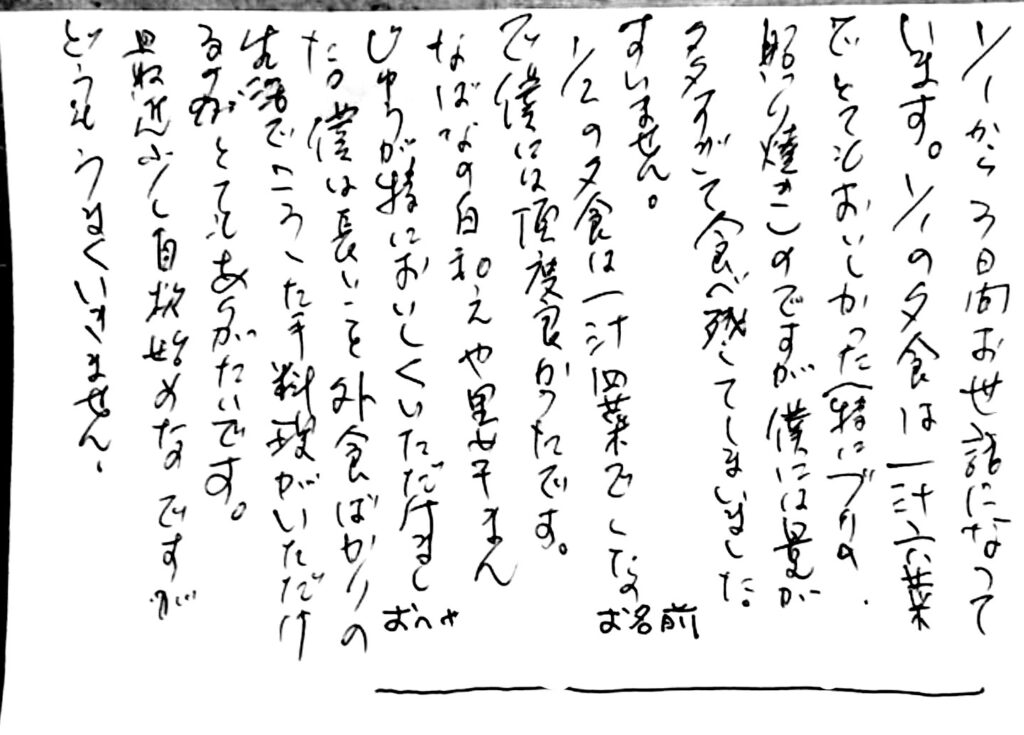 1/1から3日間お世話になって
います。1/1の夕食は一汁六菜
でとてもおいしかった(特にブリの
照り焼き)のですが僕には量が
多すぎて食べ残してしまいました。
すいません。
1/2の夕食は一汁四菜でしたの
で僕には丁度良かったです。
なばなの白和えや里芋まん
じゅうが特においしくいただけまし
た。僕は長いこと外食ばかりの
生活でこうした手料理がいただけ
るのがとてもありがたいです。
最近少し自炊始めたのですが
どうもうまくいきません.
お名前
おへや